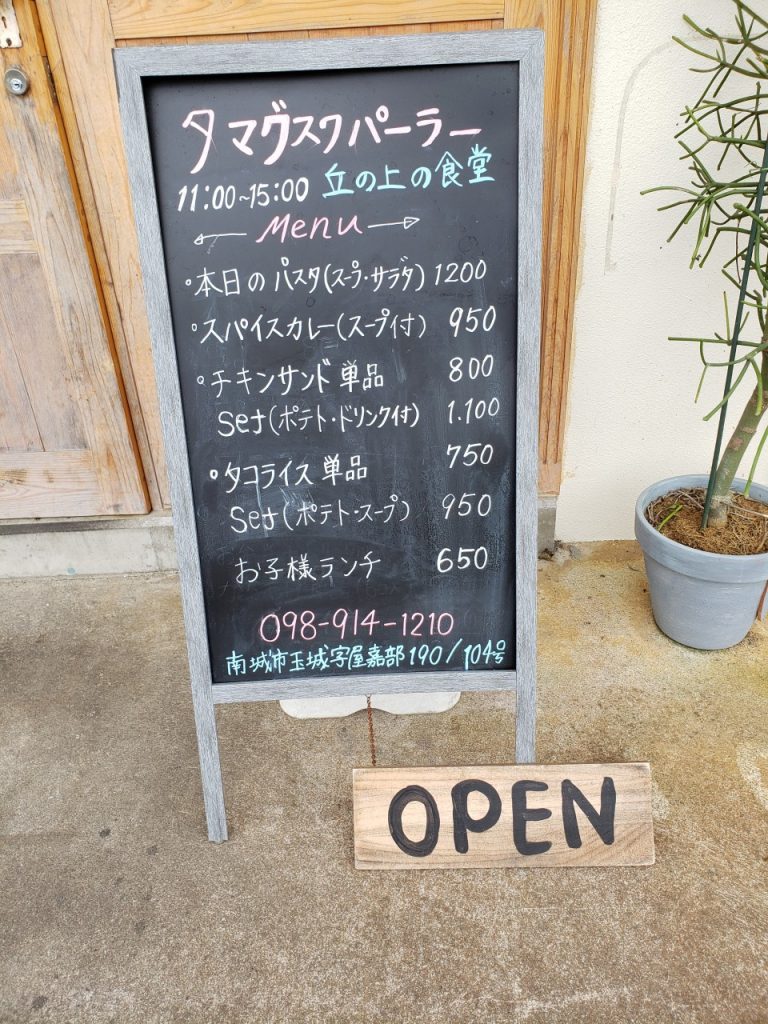 タマグスクパーラー
11:00~15:00 丘の上の食堂
← Menu →
・本日のパスタ(スープ・サラダ) 1200
。スパイスカレー(スープ付) 950
。チキンサンド単品 800
Set(ポテト・ドリンク付) 1.100
。タコライス単品 750
Set(ポテト・スープ) 950
お子様ランチ 650
098-914-1210
南城市玉城字屋嘉部190/104号
OPEN